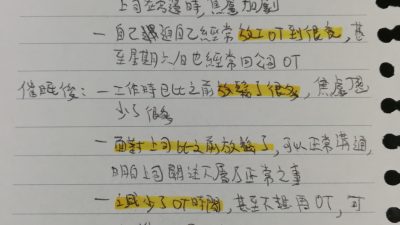 上司在旁邊時,焦慮加劇
— 自己強迫自己經常放工OT到很夜,甚
至星期六日也經常回公司OT
催眠後: — 工作時已比之前放鬆了很多,焦慮感
少了很多
— 面對上司比之前放鬆了,可以正常溝通,
明白上司 屬正常之事
— 減少了OT時間,甚至不想再OT,可